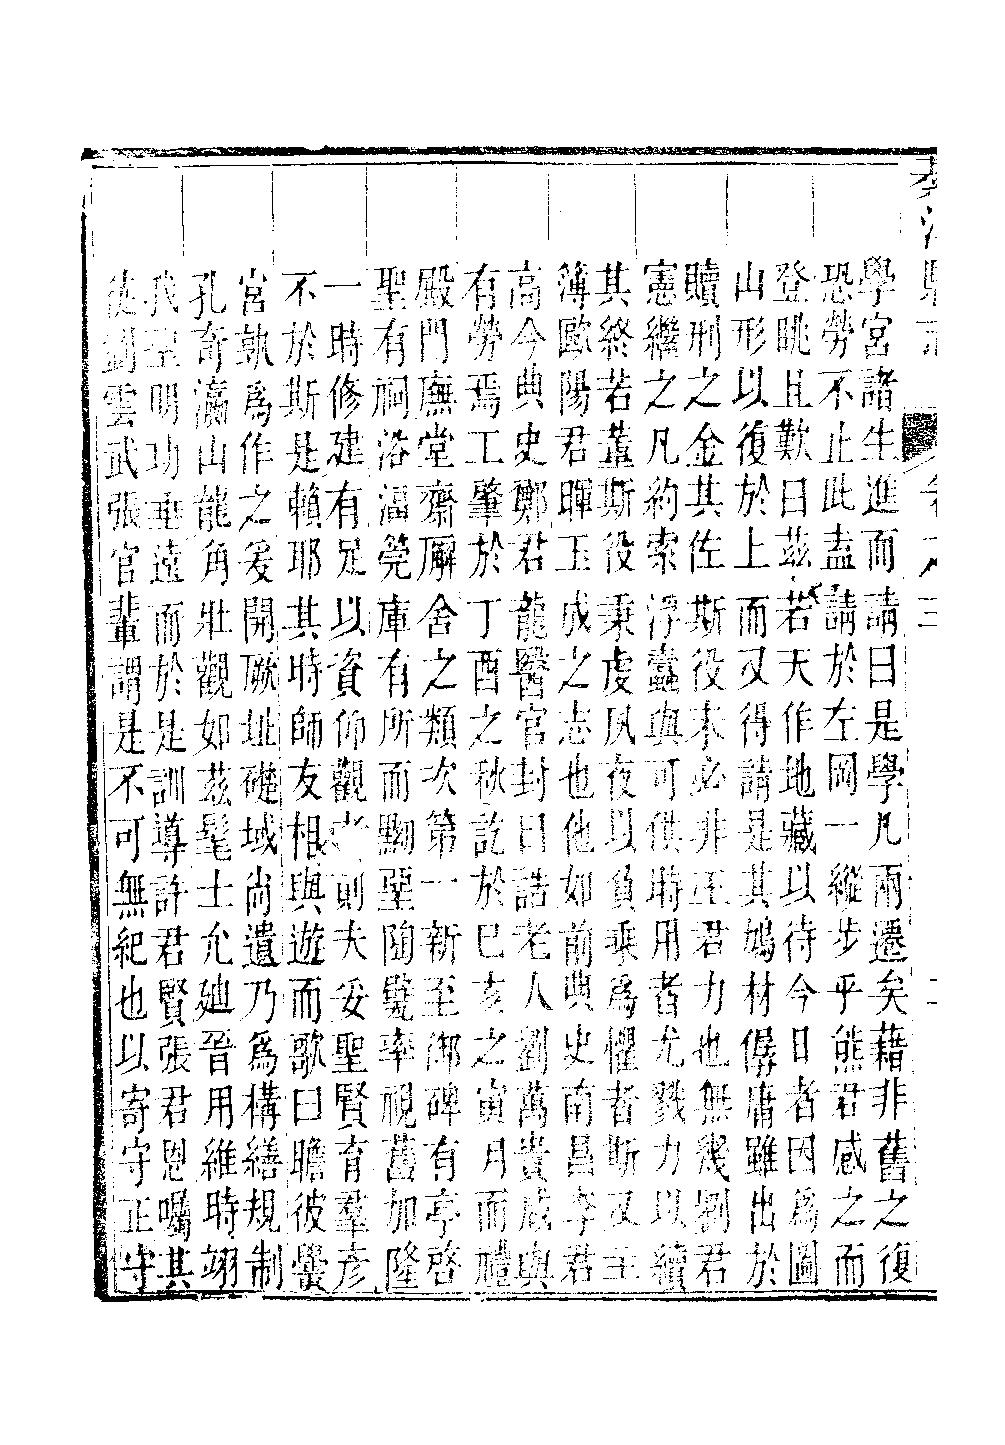 學宮諸生進而請曰是學凡兩遷矣藉非舊之復
恐勞不止此盍請於左岡一縱步乎熊君感之而
登眺且歎曰茲若天作地藏以待今日者因為圖
山形以復於上而又得請是其鳩材僝庸雖出於
贖刑之金其佐斯役未必非王君力也無幾劉君
憲繼之凡約索浮蠹與可供時用者尤戮力以續
其終若董斯役秉虔夙夜以負乘為懼者斯又主
簿歐陽君暉玉成之志也他如前典史南昌李君
高今典史鄭君龍醫官封曰誥老人劉萬貴咸與
有勞焉工肇於丁酉之秋訖於巳亥之寅月而禮
殿門廡堂齋廨舍之類次第一新至御碑有亭啓
聖有祠浴湢莞庫有所而黝堊陶甓率視舊加隆
一時修建有足以資仰觀者則夫妥聖賢育羣彥
不於斯是賴耶其時師友相與遊而歌曰瞻彼黌
宮孰為作之爰開厥址礎域尚遺乃為構繕規制
孔奇瀛山龍角壯觀如茲髦士允廸晉用維時翊
我聖明功垂遠而於是訓導許君賢張君恩囑其
徒劉雲武張官輩謂是不可無紀也以寄守正守